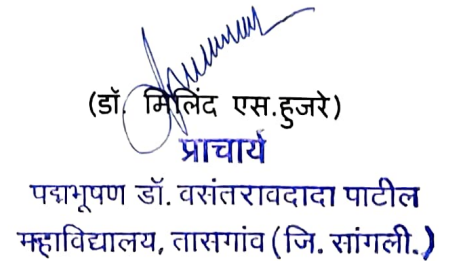 (डॉ. मिलिंद एस.हुजरे)
प्राचार्य
पद्मभूषण डॉ. वसंतरावदादा पाटील
महाविद्यालय, तासगांव (जि. सांगली.)